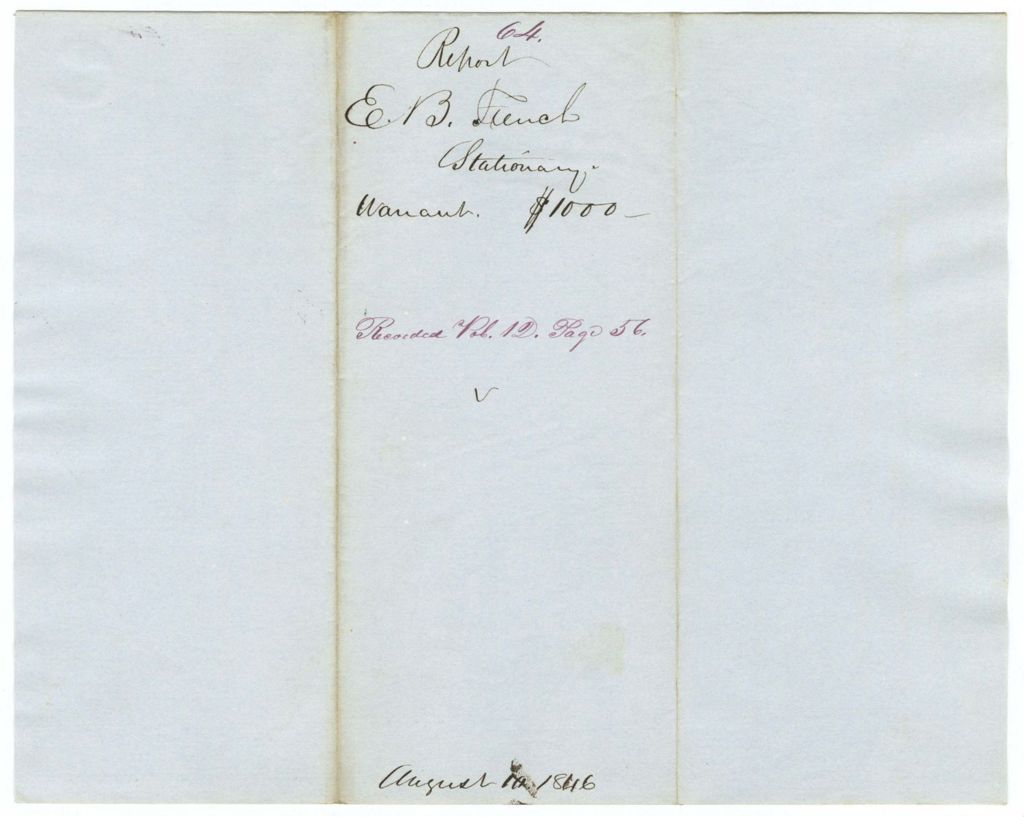 64.
Report
E. B. French
Stationary.
Warrant. $1000—
Recorded Vol. 12. Page 56.
August 10 1846